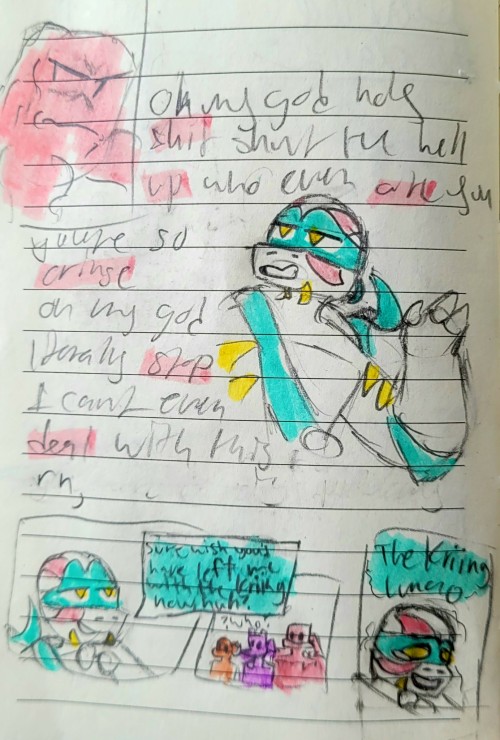 Oh my god holy
shit shut the hell
up who even are you
you're so
cringe
oh my god
literaly stop
I cant even
deal with this
rn,
Sure wish you'd
have left me
with the Kriing
now huh?
?Who?
The Kriing